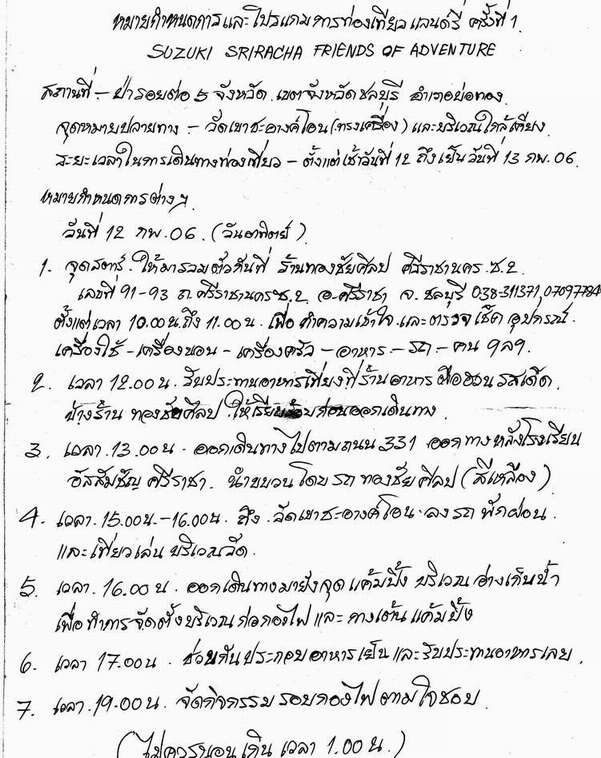 หมายกำหนดการและโปรแกรมการท่องเที่ยวแลนด์รี่ ครั้งที่ 1.
SUZUKI SRIRACHA FRIENDS OF ADVENTURE
สถานที่ - ป่ารอยต่อ 5 จังหวัด. เขตจังหวัดชลบุรี อำเภอบ่อทอง
จุดหมายปลายทาง - วัดเขาชะอางค์โอน (ทรงเครื่อง) และบริเวณใกล้เคียง
ระยะเวลาในการเดินทางท่องเที่ยว - ตั้งแต่เช้าวันที่ 12 ถึงเย็นวันที่ 13 กพ. 06.
หมายกำหนดการต่างๆ
วันที่ 12 กพ. 06. (วันอาทิตย์)
1. จุดสตาร์. ให้มารวมตัวกันที่ ร้านทองชัยศิลป ศรีราชานคร. ซ.2
เลขที่ 91-93 ถ. ศรีราชานคร ซ.2 อ.ศรีราชา จ. ชลบุรี 038-311371,
ตั้งแต่เวลา 10.00น. ถึง 11.00น. เพื่อ ทำความเข้าใจ และตรวจเช็ค อุปกรณ์.
เครื่องใช้ - เครื่องนอน - เครื่องครัว - อาหาร - รถ - คน ฯลฯ.
2. เวลา 12.00น. รับประทานอาหารเที่ยงที่ร้านอาหาร รสเด็ด.
ข้างร้าน ทองชัยศิลป ให้เรียบร้อยก่อนออกเดินทาง
3. เวลา. 13.00น. ออกเดินทางไปตามถนน 331 ออกทางหลังโรงเรียน
อัสสัมชัญ ศรีราชา. นำขบวนโดย รถ ทองชัยศิลป (สีเหลือง)
4. เวลา. 15.00น. - 16.00น. ถึง วัดเขาชะอางค์โอน. ลงรถ พักผ่อน.
และเที่ยวเล่น บริเวณวัด.
5. เวลา. 16.00 น. ออกเดินทางมายังจุด แค้มปิ้ง บริเวณ อ่างเก็บน้ำ
เพื่อทำการจัดตั้งบริเวณ ก่อกองไฟ และ กางเต้น แค้มปิ้ง
6. เวลา 17.00น. ช่วยกันประกอบอาหารเย็น และรับประทานอาหารเลย.
7. เวลา. 19.00น. จัดกิจกรรมรอบกองไฟตามใจชอบ
(ไม่ควรนอนเกิน เวลา 1.00 น.)